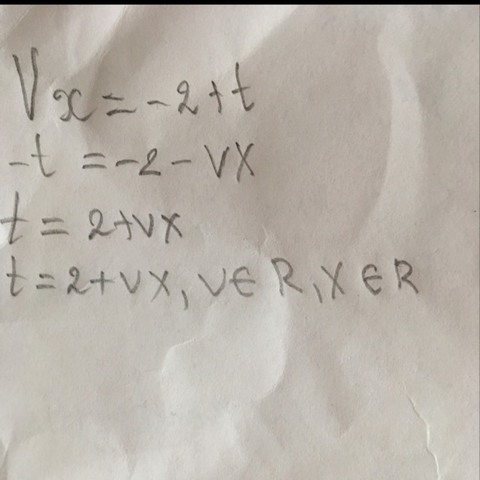 Vx=-2+t
-t=-2-VX
t=2+VX
t=2+VX, V∈R, X∈R